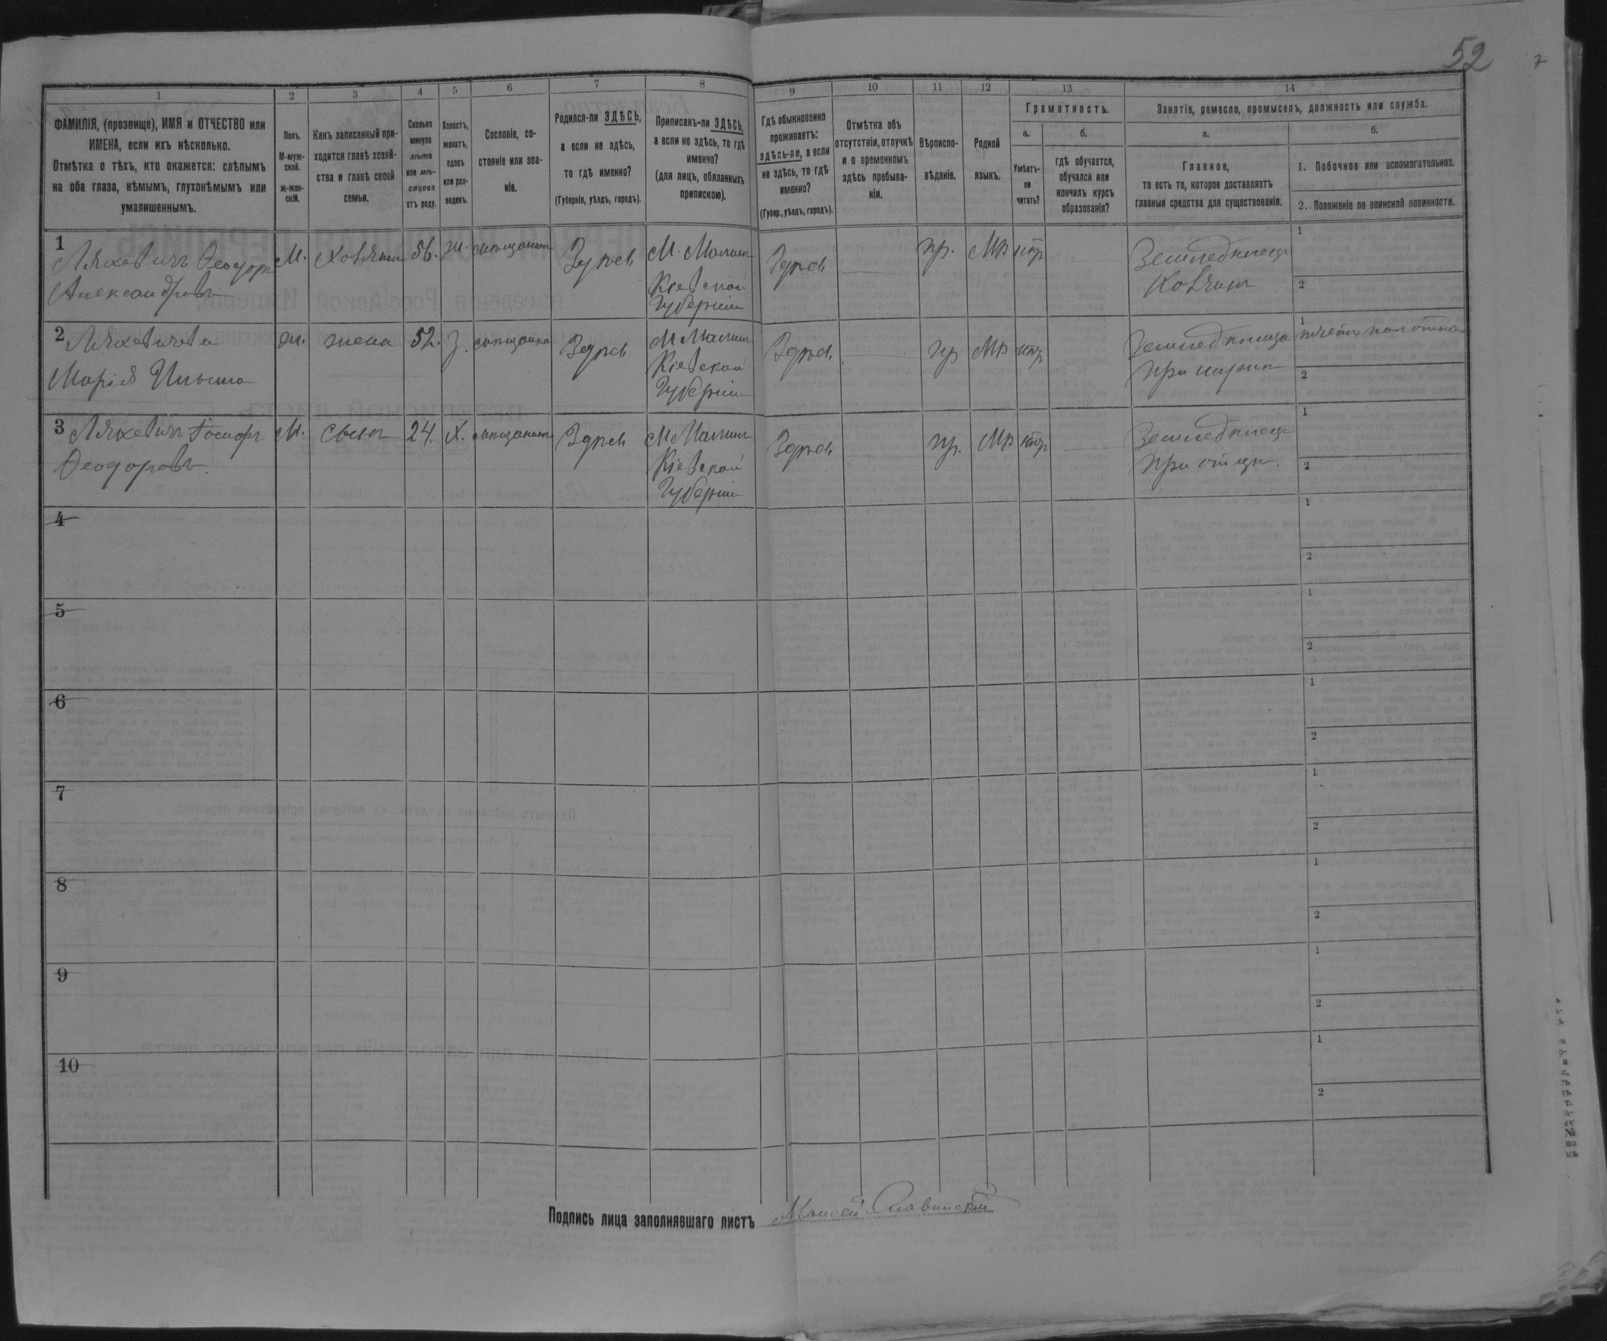 52
1 2 3 4 5 6 7 8 9 10 11 12 13 14
ФАМИЛІЯ, (прозвище), ИМЯ и ОТЧЕСТВО или
ИМЕНА, если ихъ нѣсколько.
Отмѣтка о тѣхъ, кто окажется: слѣпымъ
на оба глаза, нѣмымъ, глухонѣмымъ или
умалишеннымъ.
Полъ.
М-муж-
ской.
Ж-жен-
скій.
Какъ записанный при-
ходится главѣ хозяй-
ства и главѣ своей
семьи.
Сколько
минуло
лѣтъ
или мѣ-
сяцевъ
отъ роду.
Холостъ,
женатъ,
вдовъ
или раз-
веденъ.
Сословіе, со-
стояніе или зва-
ніе.
Родился-ли ЗДѢСЬ,
а если не здѣсь,
то гдѣ именно?
(Губернія, уѣздъ, городъ).
Приписанъ-ли ЗДѢСЬ,
а если не здѣсь, то гдѣ
именно?
(для лицъ, обязанныхъ
припискою).
Гдѣ обыкновенно
проживаетъ:
здѣсь-ли, а если
не здѣсь, то гдѣ
именно?
(Губер., уѣздъ, городъ).
Отмѣтка объ
отсутствіи, отлучкѣ
и о временномъ
здѣсь пребыва-
ніи.
Вѣроиспо-
вѣданіе.
Родной
языкъ.
Грамотность.
а.
Умѣетъ-
ли
читать?
б.
гдѣ обучается,
обучался или
кончилъ курсъ
образованія?
Занятіе, ремесло, промыселъ, должность или служба.
а.
Главное,
то есть то, которое доставляетъ
главныя средства для существованія.
б.
1. Побочное или вспомогательное.
2. Положеніе по воинской повинности.
1 Ляхевичъ Ѳеодоръ М. 56. ж. мѣщанинъ Здѣсь М Малинъ Здѣсь пр. Мр Земледѣлецъ 1
Александровъ Кіевской 2
Губерніи
2 Ляхевичева ж. жена 52. З. мѣщанка Здѣсь М Малинъ Здѣсь пр Мр Земледѣлица 1
Марія Кіевской при 2
Губерніи
3 Ляхевичъ М. сынъ 24. Х. мѣщанинъ Здѣсь М Малинъ Здѣсь пр. Мр Земледѣлецъ 1
Ѳеодоровъ. Кіевской при отцѣ. 2
Губерніи
4 1
2
5 1
2
6 1
2
7 1
2
8 1
2
9 1
2
10 1
2
Подпись лица заполнявшаго листъ Моисей Славинскій